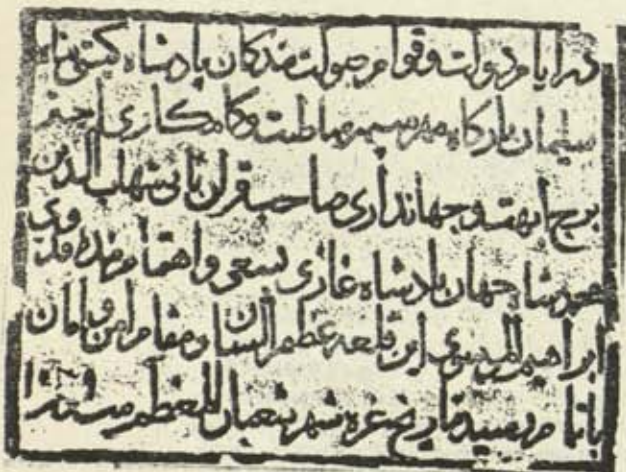 در ایام دولت و قوام صولت بندکان پادشاه کیتی پناه
سلیمان بارکاه مهر سپهر سلطنت و کامکاری اختر
برج ابهت و جهانداری صاحب قران ثانی شهاب الدین
محمد شاه جهان پادشاه غازی بسعی و اهتمام بنده فدوی
ابراهیم این قلعه عظیم الشان و مقام امن و امان
باتمام رسید تاریخ غره شهر شعبان المعظم